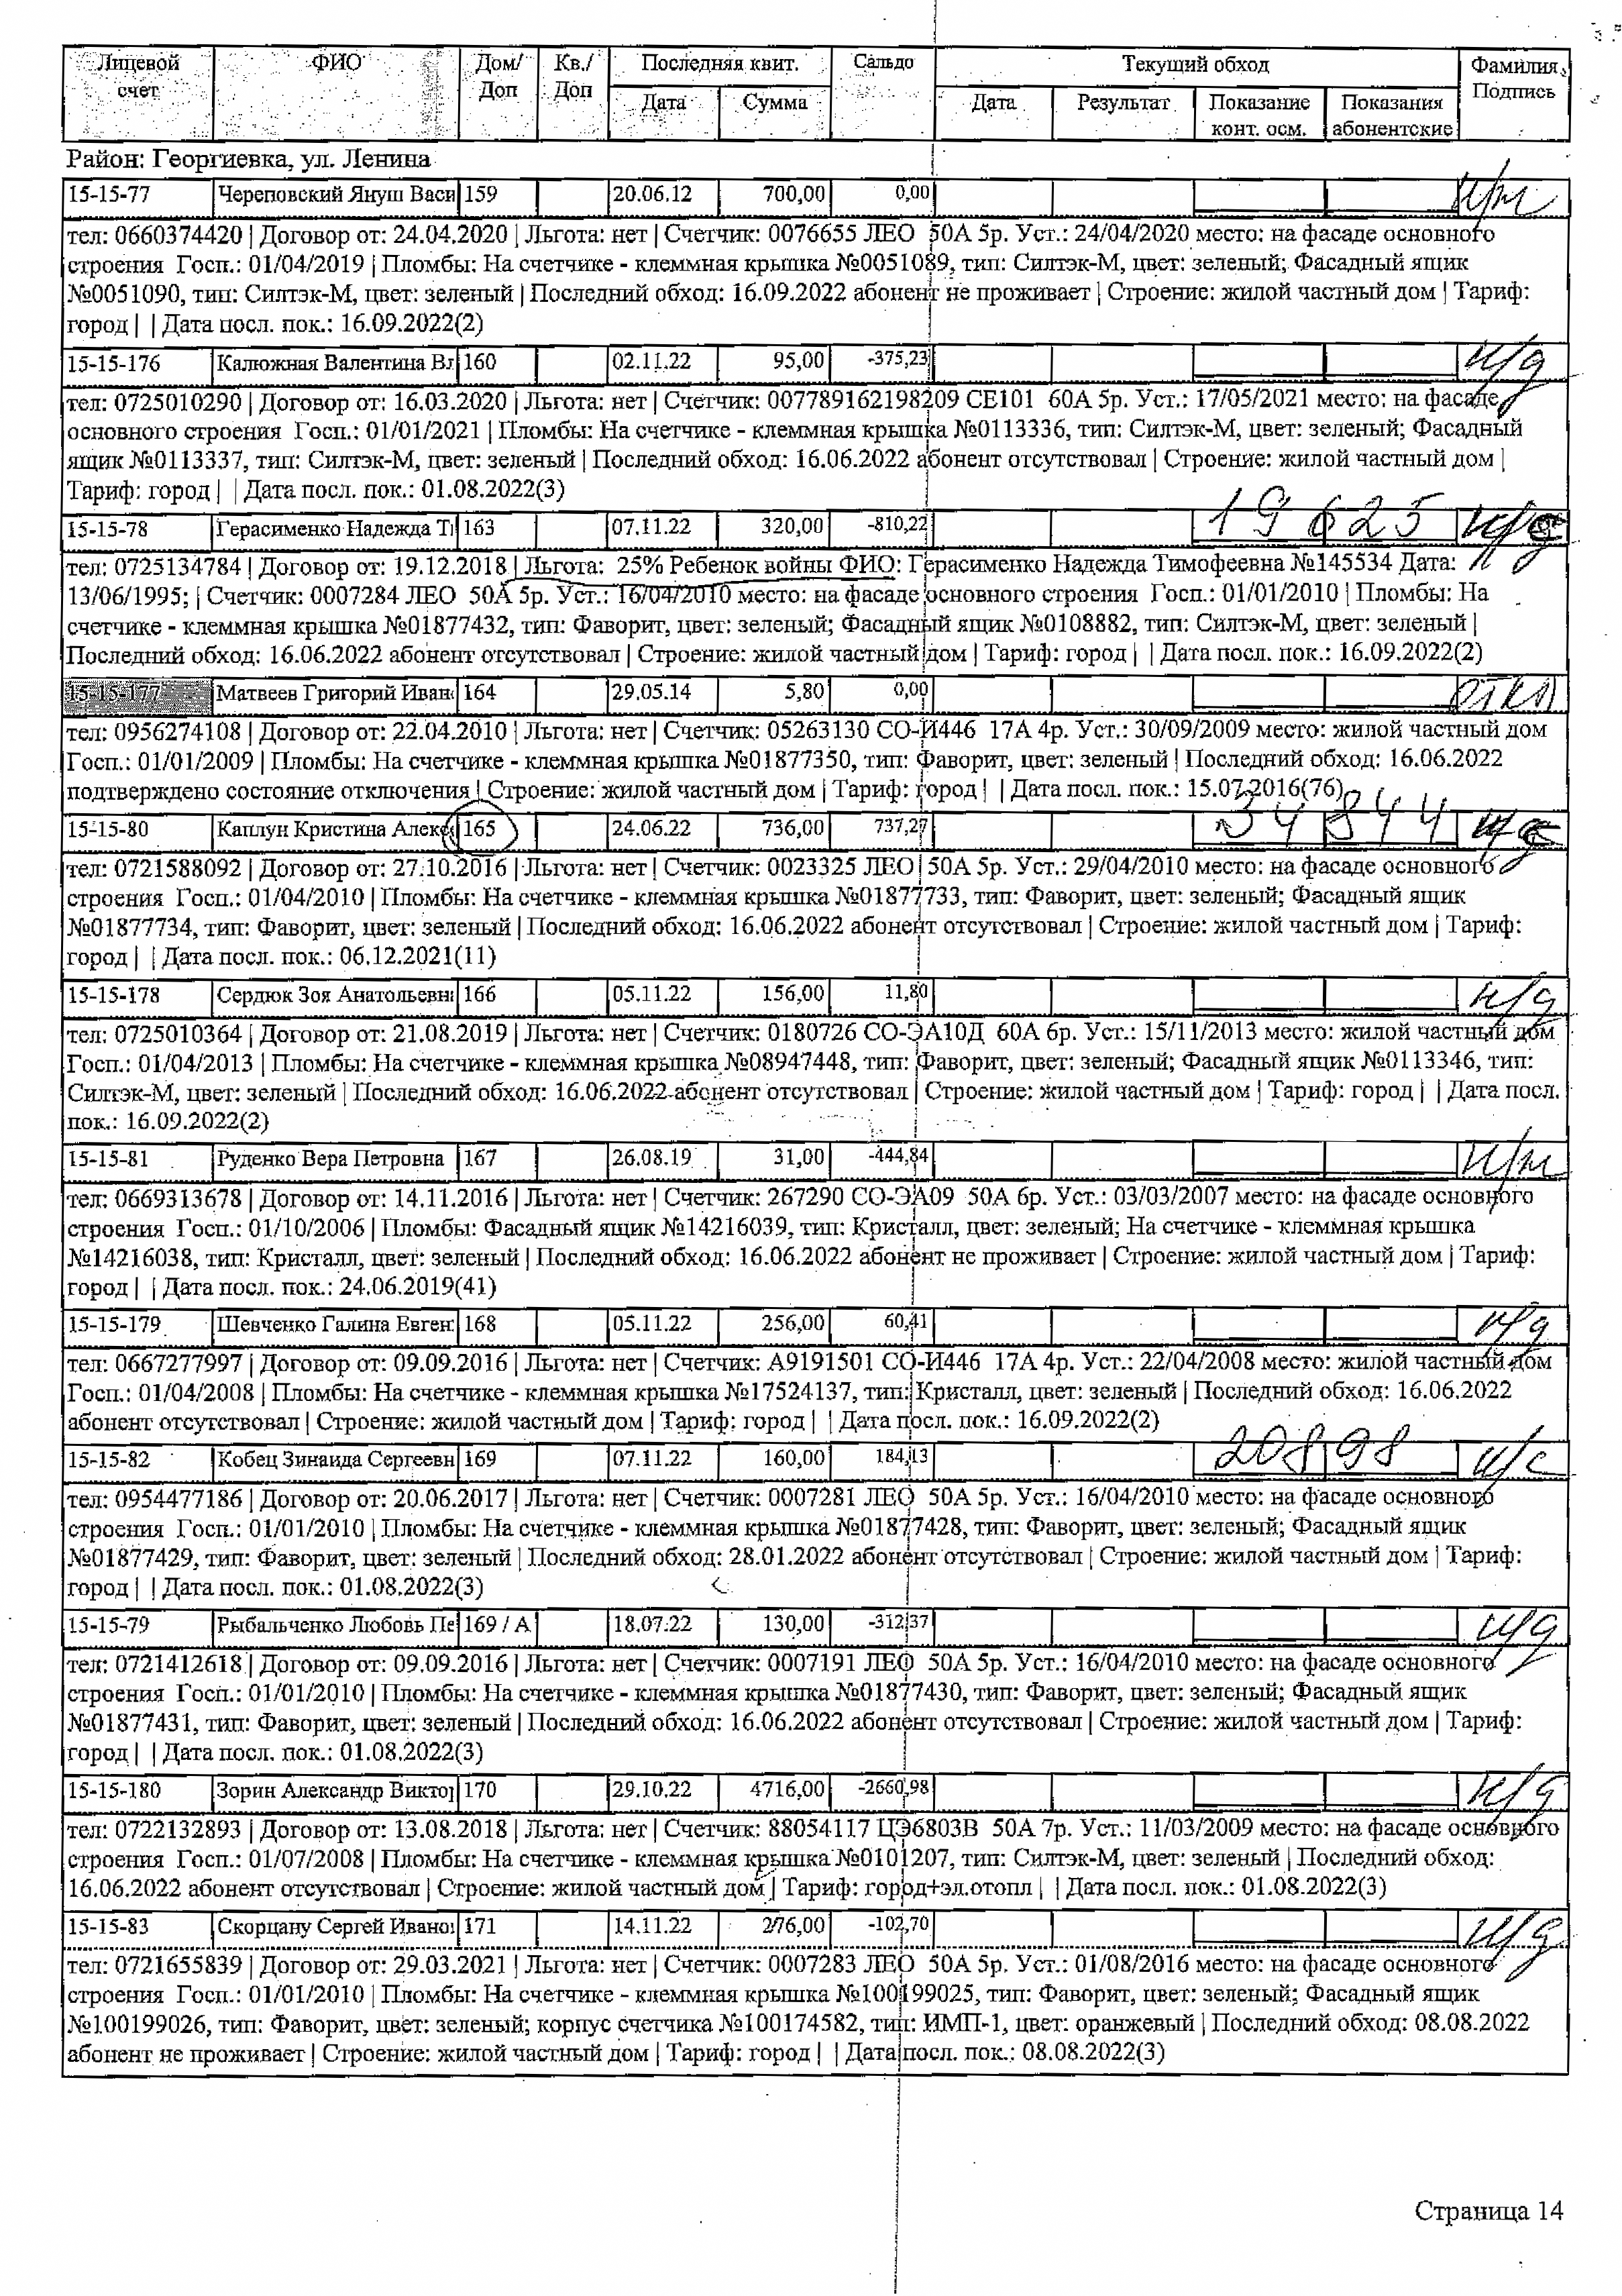 Лицевой счет ФИО Дом/ Доп Кв./ Доп Последняя квит. Сальдо Текущий обход Фамилия, Подпись
Дата Сумма Дата Результат Показание конт. осм. Показания абонентские
Район: Георгиевка, ул. Ленина
15-15-77 Череповский Януш Васи 159 20.06.12 700,00 0,00 н/ж
тел: 0660374420 | Договор от: 24.04.2020 | Льгота: нет | Счетчик: 0076655 ЛЕО 50А 5р. Уст.: 24/04/2020 место: на фасаде основного
строения Госп.: 01/04/2019 | Пломбы: На счетчике - клеммная крышка №0051089, тип: Силтэк-М, цвет: зеленый; Фасадный ящик
№0051090, тип: Силтэк-М, цвет: зеленый | Последний обход: 16.09.2022 абонент не проживает | Строение: жилой частный дом | Тариф:
город | | Дата посл. пок.: 16.09.2022(2)
15-15-176 Калюжная Валентина Вл 160 02.11.22 95,00 -375,23 н/д
тел: 0725010290 | Договор от: 16.03.2020 | Льгота: нет | Счетчик: 007789162198209 СЕ101 60А 5р. Уст.: 17/05/2021 место: на фасаде
основного строения Госп.: 01/01/2021 | Пломбы: На счетчике - клеммная крышка №0113336, тип: Силтэк-М, цвет: зеленый; Фасадный
ящик №0113337, тип: Силтэк-М, цвет: зеленый | Последний обход: 16.06.2022 абонент отсутствовал | Строение: жилой частный дом |
Тариф: город | | Дата посл. пок.: 01.08.2022(3)
15-15-78 Герасименко Надежда Ти 163 07.11.22 320,00 -810,22 19625
тел: 0725134784 | Договор от: 19.12.2018 | Льгота: 25% Ребенок войны ФИО: Герасименко Надежда Тимофеевна №145534 Дата:
13/06/1995; | Счетчик: 0007284 ЛЕО 50А 5р. Уст.: 16/04/2010 место: на фасаде основного строения Госп.: 01/01/2010 | Пломбы: На
счетчике - клеммная крышка №01877432, тип: Фаворит, цвет: зеленый; Фасадный ящик №0108882, тип: Силтэк-М, цвет: зеленый |
Последний обход: 16.06.2022 абонент отсутствовал | Строение: жилой частный дом | Тариф: город | | Дата посл. пок.: 16.09.2022(2)
15-15-177 Матвеев Григорий Иван 164 29.05.14 5,80 0,00 откл
тел: 0956274108 | Договор от: 22.04.2010 | Льгота: нет | Счетчик: 05263130 СО-И446 17А 4р. Уст.: 30/09/2009 место: жилой частный дом
Госп.: 01/01/2009 | Пломбы: На счетчике - клеммная крышка №01877350, тип: Фаворит, цвет: зеленый | Последний обход: 16.06.2022
подтверждено состояние отключения | Строение: жилой частный дом | Тариф: город | | Дата посл. пок.: 15.07.2016(76)
15-15-80 Каплун Кристина Алекс 165 24.06.22 736,00 737,27 34844
тел: 0721588092 | Договор от: 27.10.2016 | Льгота: нет | Счетчик: 0023325 ЛЕО 50А 5р. Уст.: 29/04/2010 место: на фасаде основного
строения Госп.: 01/04/2010 | Пломбы: На счетчике - клеммная крышка №01877733, тип: Фаворит, цвет: зеленый; Фасадный ящик
№01877734, тип: Фаворит, цвет: зеленый | Последний обход: 16.06.2022 абонент отсутствовал | Строение: жилой частный дом | Тариф:
город | | Дата посл. пок.: 06.12.2021(11)
15-15-178 Сердюк Зоя Анатольевна 166 05.11.22 156,00 11,80 н/д
тел: 0725010364 | Договор от: 21.08.2019 | Льгота: нет | Счетчик: 0180726 СО-ЭА10Д 60А 6р. Уст.: 15/11/2013 место: жилой частный дом
Госп.: 01/04/2013 | Пломбы: На счетчике - клеммная крышка №08947448, тип: Фаворит, цвет: зеленый; Фасадный ящик №0113346, тип:
Силтэк-М, цвет: зеленый | Последний обход: 16.06.2022 абонент отсутствовал | Строение: жилой частный дом | Тариф: город | | Дата посл.
пок.: 16.09.2022(2)
15-15-81 Руденко Вера Петровна 167 26.08.19 31,00 -444,84 н/ж
тел: 0669313678 | Договор от: 14.11.2016 | Льгота: нет | Счетчик: 267290 СО-ЭА09 50А 6р. Уст.: 03/03/2007 место: на фасаде основного
строения Госп.: 01/10/2006 | Пломбы: Фасадный ящик №14216039, тип: Кристалл, цвет: зеленый; На счетчике - клеммная крышка
№14216038, тип: Кристалл, цвет: зеленый | Последний обход: 16.06.2022 абонент не проживает | Строение: жилой частный дом | Тариф:
город | | Дата посл. пок.: 24.06.2019(41)
15-15-179 Шевченко Галина Евген 168 05.11.22 256,00 60,41 н/д
тел: 0667277997 | Договор от: 09.09.2016 | Льгота: нет | Счетчик: А9191501 СО-И446 17А 4р. Уст.: 22/04/2008 место: жилой частный дом
Госп.: 01/04/2008 | Пломбы: На счетчике - клеммная крышка №17524137, тип: Кристалл, цвет: зеленый | Последний обход: 16.06.2022
абонент отсутствовал | Строение: жилой частный дом | Тариф: город | | Дата посл. пок.: 16.09.2022(2)
15-15-82 Кобец Зинаида Сергеевн 169 07.11.22 160,00 184,13 20898 н/с
тел: 0954477186 | Договор от: 20.06.2017 | Льгота: нет | Счетчик: 0007281 ЛЕО 50А 5р. Уст.: 16/04/2010 место: на фасаде основного
строения Госп.: 01/01/2010 | Пломбы: На счетчике - клеммная крышка №01877428, тип: Фаворит, цвет: зеленый; Фасадный ящик
№01877429, тип: Фаворит, цвет: зеленый | Последний обход: 28.01.2022 абонент отсутствовал | Строение: жилой частный дом | Тариф:
город | | Дата посл. пок.: 01.08.2022(3)
15-15-79 Рыбальченко Любовь Пе 169 / А 18.07.22 130,00 -312,37 н/д
тел: 0721412618 | Договор от: 09.09.2016 | Льгота: нет | Счетчик: 0007191 ЛЕО 50А 5р. Уст.: 16/04/2010 место: на фасаде основного
строения Госп.: 01/01/2010 | Пломбы: На счетчике - клеммная крышка №01877430, тип: Фаворит, цвет: зеленый; Фасадный ящик
№01877431, тип: Фаворит, цвет: зеленый | Последний обход: 16.06.2022 абонент отсутствовал | Строение: жилой частный дом | Тариф:
город | | Дата посл. пок.: 01.08.2022(3)
15-15-180 Зорин Александр Виктор 170 29.10.22 4716,00 -2660,98 н/д
тел: 0722132893 | Договор от: 13.08.2018 | Льгота: нет | Счетчик: 88054117 ЦЭ6803В 50А 7р. Уст.: 11/03/2009 место: на фасаде основного
строения Госп.: 01/07/2008 | Пломбы: На счетчике - клеммная крышка №0101207, тип: Силтэк-М, цвет: зеленый | Последний обход:
16.06.2022 абонент отсутствовал | Строение: жилой частный дом | Тариф: город+эл.отопл | | Дата посл. пок.: 01.08.2022(3)
15-15-83 Скорцану Сергей Ивано 171 14.11.22 276,00 -102,70 н/д
тел: 0721655839 | Договор от: 29.03.2021 | Льгота: нет | Счетчик: 0007283 ЛЕО 50А 5р. Уст.: 01/08/2016 место: на фасаде основного
строения Госп.: 01/01/2010 | Пломбы: На счетчике - клеммная крышка №100199025, тип: Фаворит, цвет: зеленый; Фасадный ящик
№100199026, тип: Фаворит, цвет: зеленый; корпус счетчика №100174582, тип: ИМП-1, цвет: оранжевый | Последний обход: 08.08.2022
абонент не проживает | Строение: жилой частный дом | Тариф: город | | Дата посл. пок.: 08.08.2022(3)
Страница 14